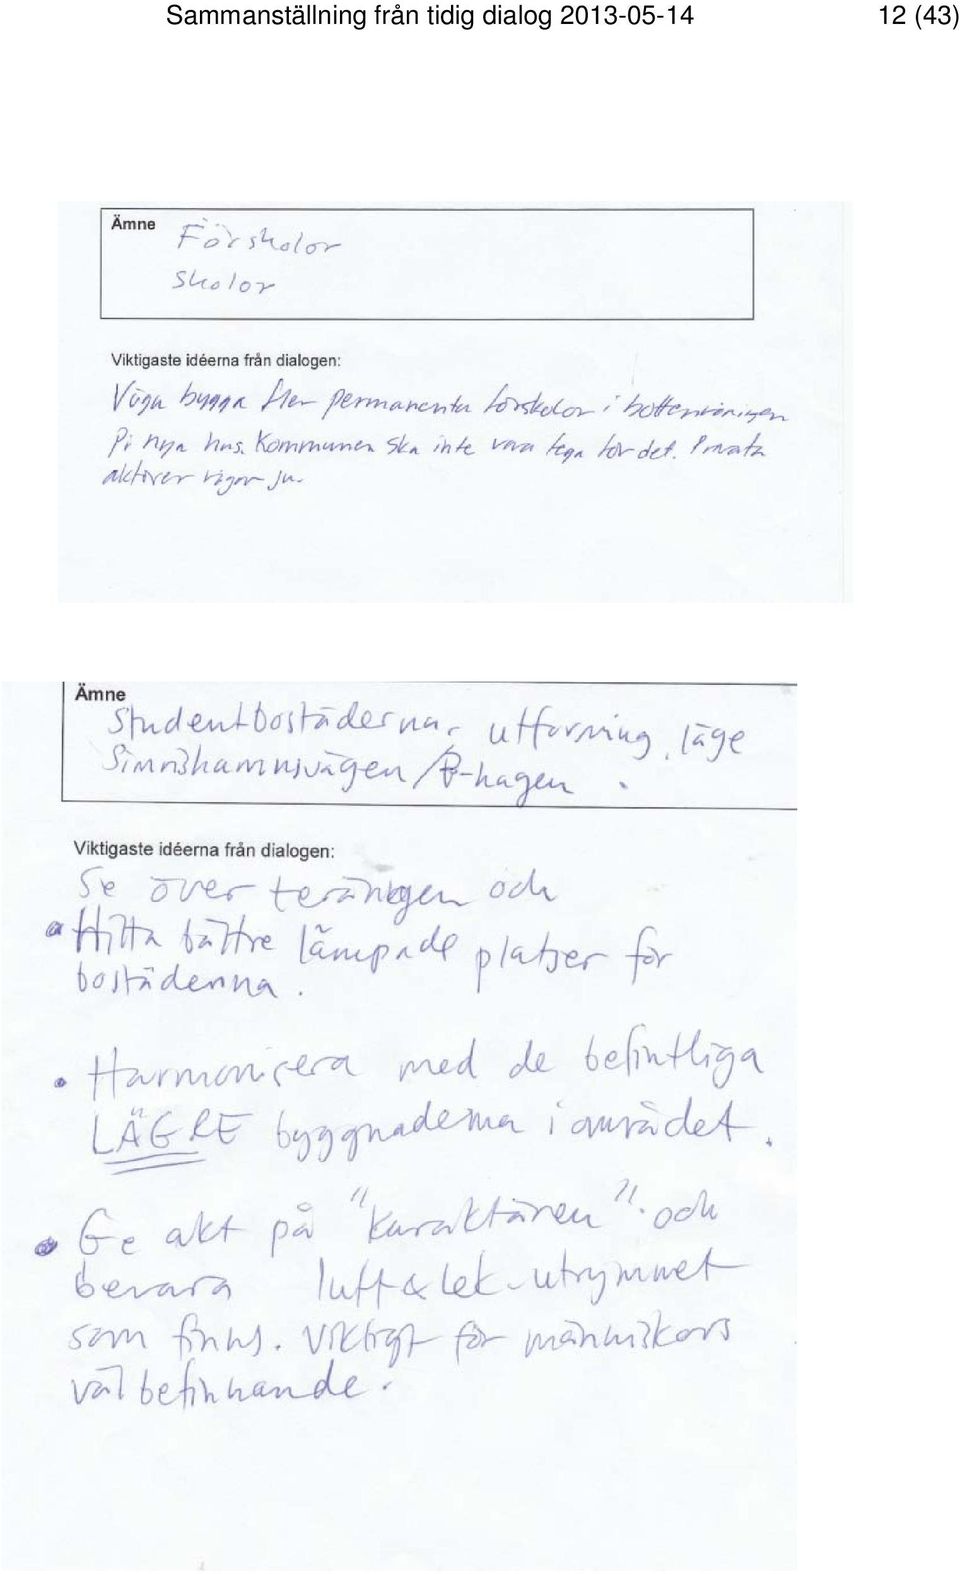 Sammanställning från tidig dialog 2013-05-14 12 (43)
Ämne
Förskolor
Skolor
Viktigaste idéerna från dialogen:
Våga bygga fler permanenta förskolor i bottenvåningen
på nya hus. Kommunen ska inte vara fega för det. Privata
aktörer vågar ju.
Ämne
Studentbostäderna, utforvning, läge
Simrishamnsvägen/B-hagen.
Viktigaste idéerna från dialogen:
Se över och
• Hitta bättre lämpade platser för
bostäderna.
• Harmonisera med de befintliga
LÄGRE byggnaderna i området.
• Ge akt på "karaktären". och
bevara luft & lek-utrymmet
som finns. Viktigt för människors
välbefinnande.